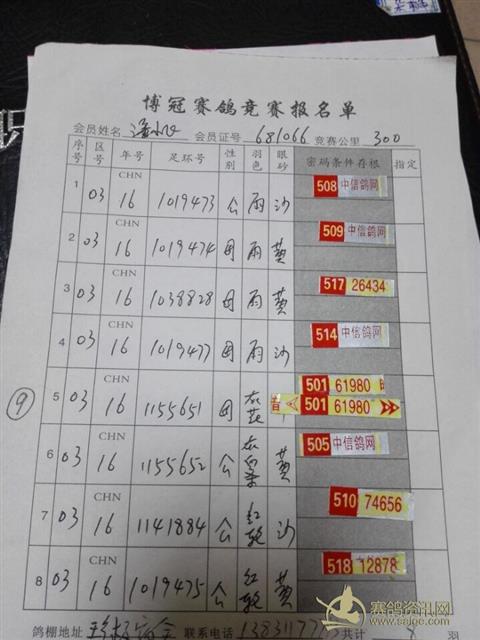 博冠赛鸽竞赛报名单
会员姓名 会员证号 681066 竞赛公里 300
序号 区号 年号 足环号 性别 羽色 眼砂 密码条件存根 指定
1 03 CHN 16 1019473 公 雨 沙 508 中信鸽网
2 03 CHN 16 1019474 母 雨 黄 509 中信鸽网
3 03 CHN 16 1038828 母 雨 黄 517 26434
4 03 CHN 16 1019477 母 雨 沙 514 中信鸽网
5 03 CHN 16 1155651 母 灰花 501 61980
501 61980
6 03 CHN 16 1155652 公 黄 505 中信鸽网
7 03 CHN 16 1141884 公 红轮 沙 510 74656
8 03 CHN 16 1019475 公 红轮 黄 518 12878
⑨
鸽棚地址 联系电话 共计 8 羽
赛鸽资讯网
www.saige.com